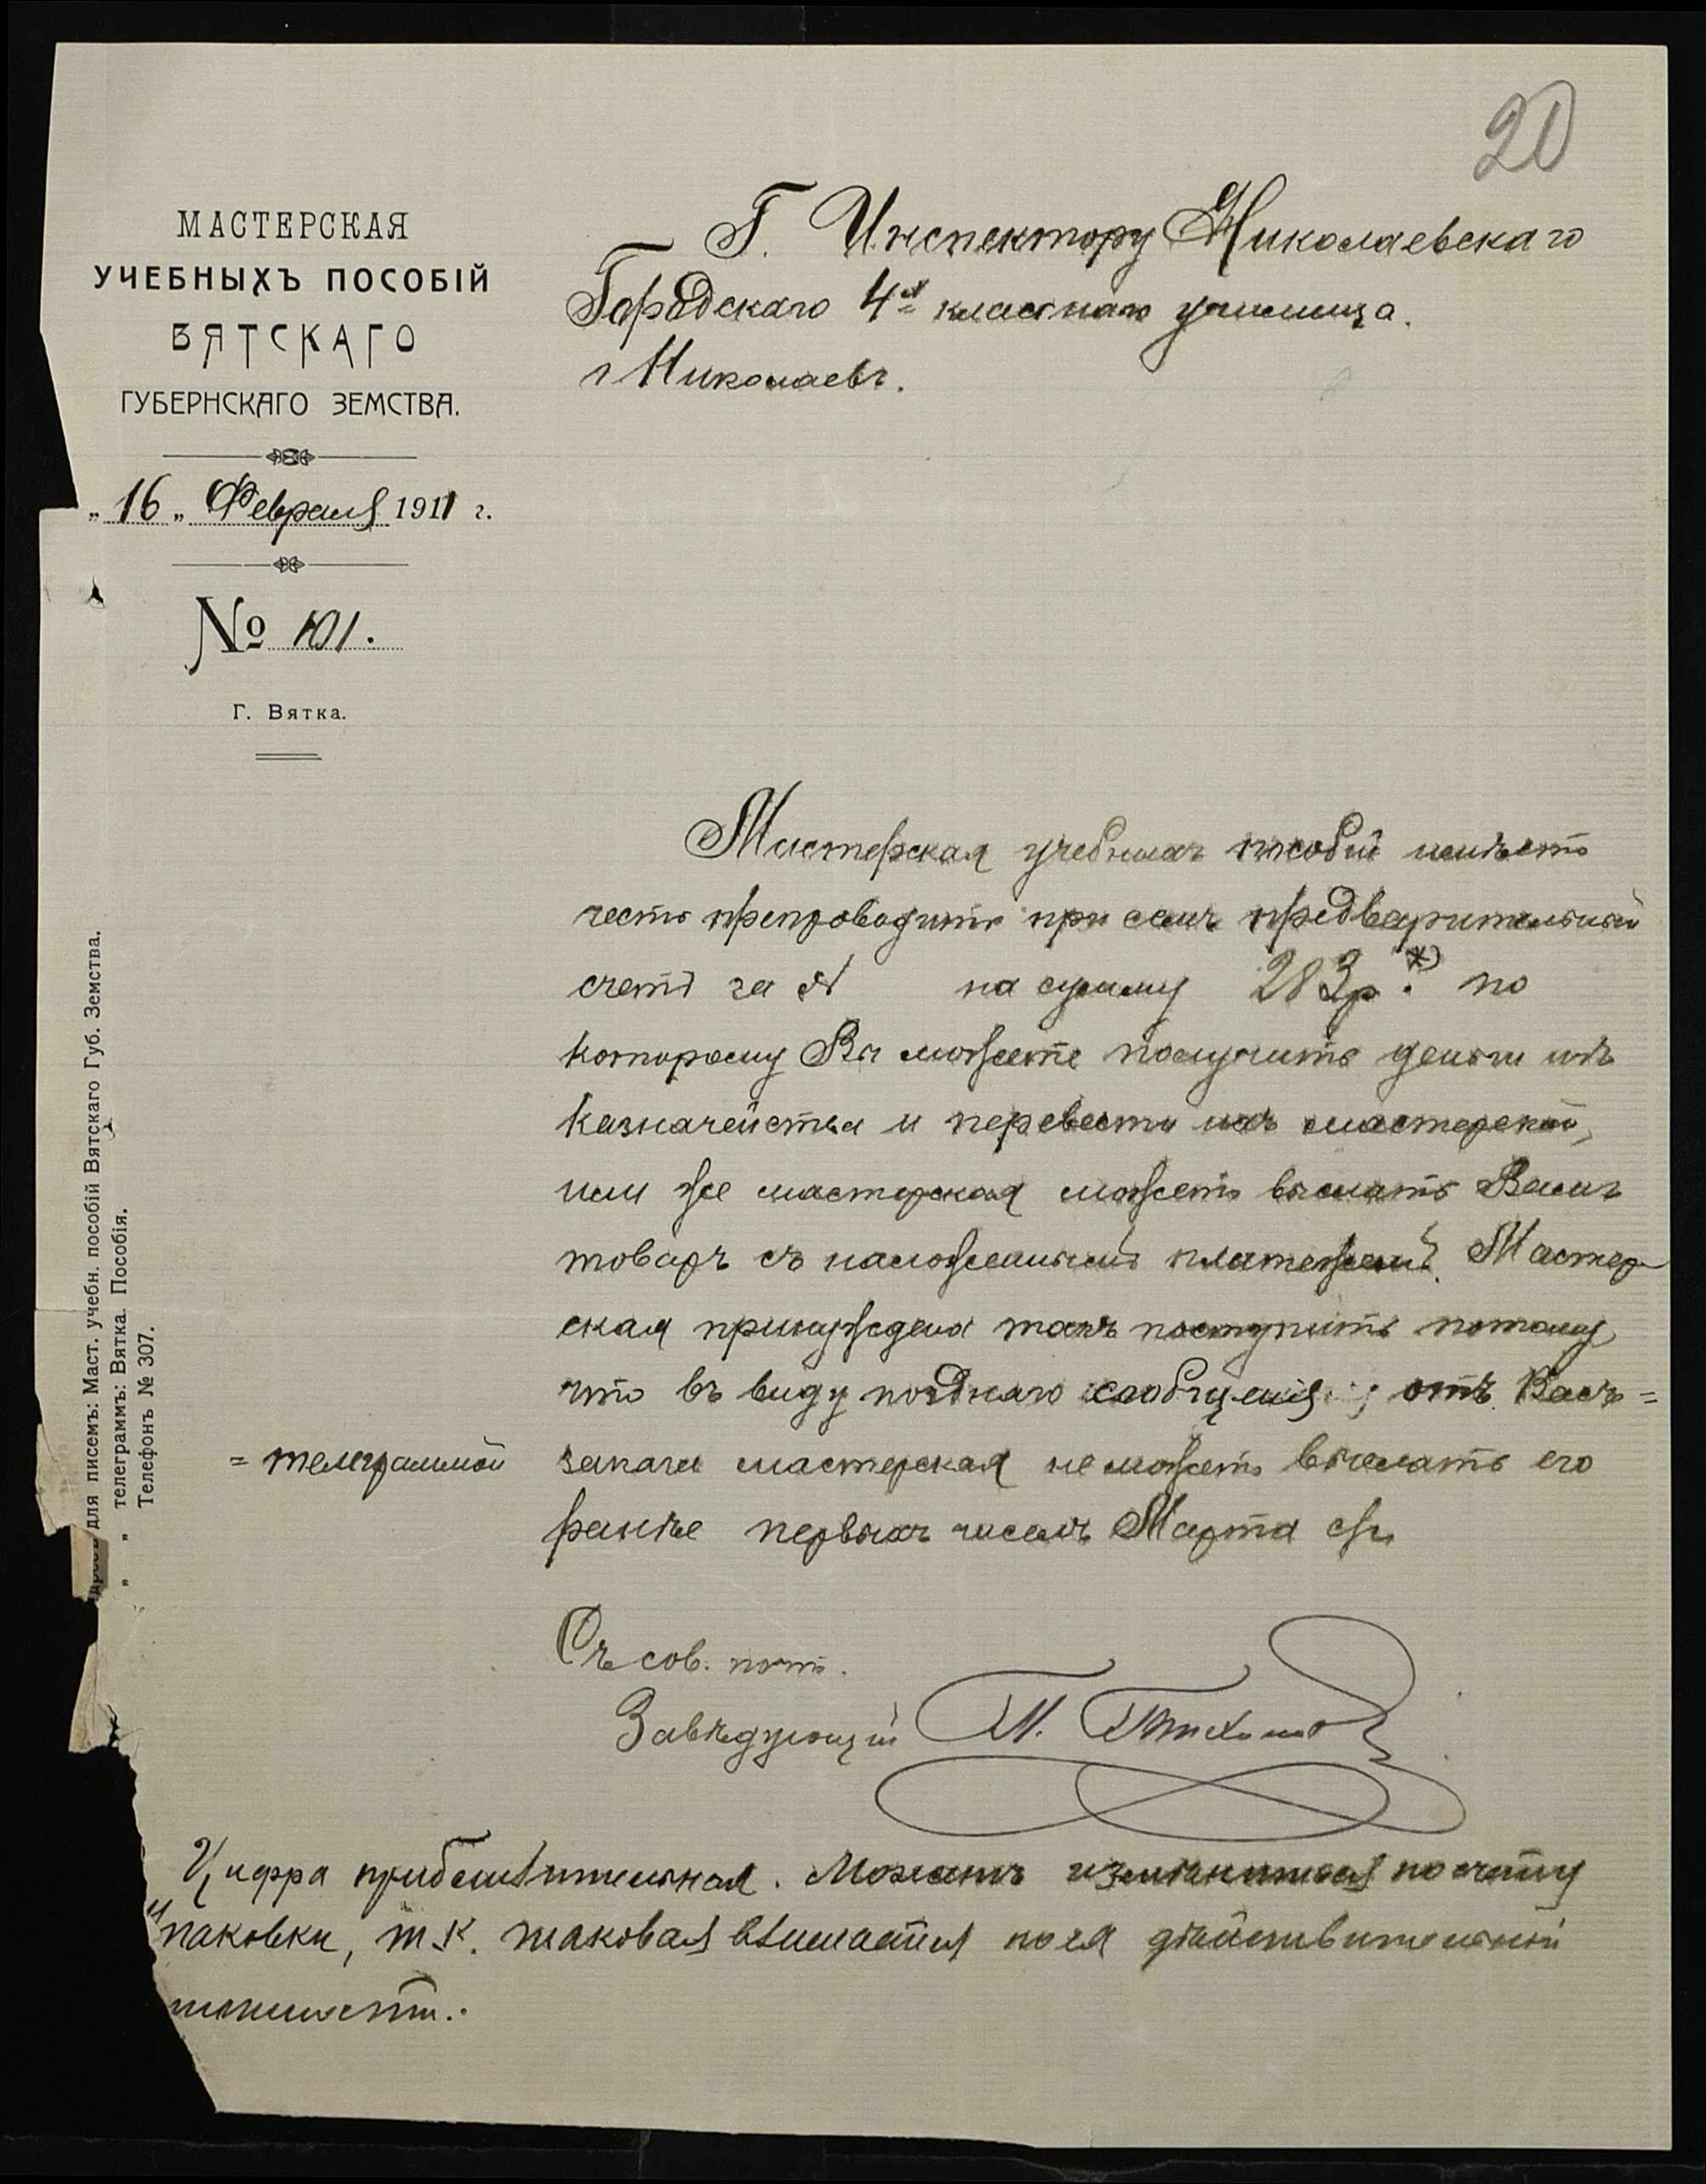 20
МАСТЕРСКАЯ
УЧЕБНЫХЪ ПОСОБІЙ
ВЯТСКАГО
ГУБЕРНСКАГО ЗЕМСТВА.
„16„ Февраля 1911 г.
№ 101.
Г. Вятка.
Г. Инспектору Николаевскаго
Городскаго 4х класснаго училища.
г Николаевъ.
Мастерская учебныхъ пособій имѣетъ
честь препроводить при семъ предварительный
счетъ за № на сумму 283р.*) по
которому Вы можете получить деньги изъ
казначейства и перевести ихъ мастерской,
или же мастерская можетъ выслать Вамъ
товаръ съ наложеннымъ платежемъ. Мастер-
ская принуждена такъ поступить потому,
что въ виду поздняго сообщенія отъ Васъ =
= телеграммой
заказа мастерская не можетъ выслать его
ранѣе первыхъ чиселъ Марта с/г.
Съ сов. почт.
Завѣдующій П. Тихонов
Цифра приблизительная. Можетъ измѣниться по счету
упаковки, т.к. таковая взимается по ея дѣйствительной
стоимости.
Адресъ для писемъ: Маст. учебн. пособій Вятскаго Губ. Земства.
„ „ телеграммъ: Вятка. Пособія.
Телефонъ № 307.